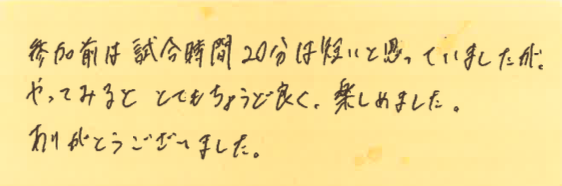 参加前は試合時間20分は短いと思っていましたが、
やってみると とてもちょうど良く、楽しめました。
ありがとうございました。